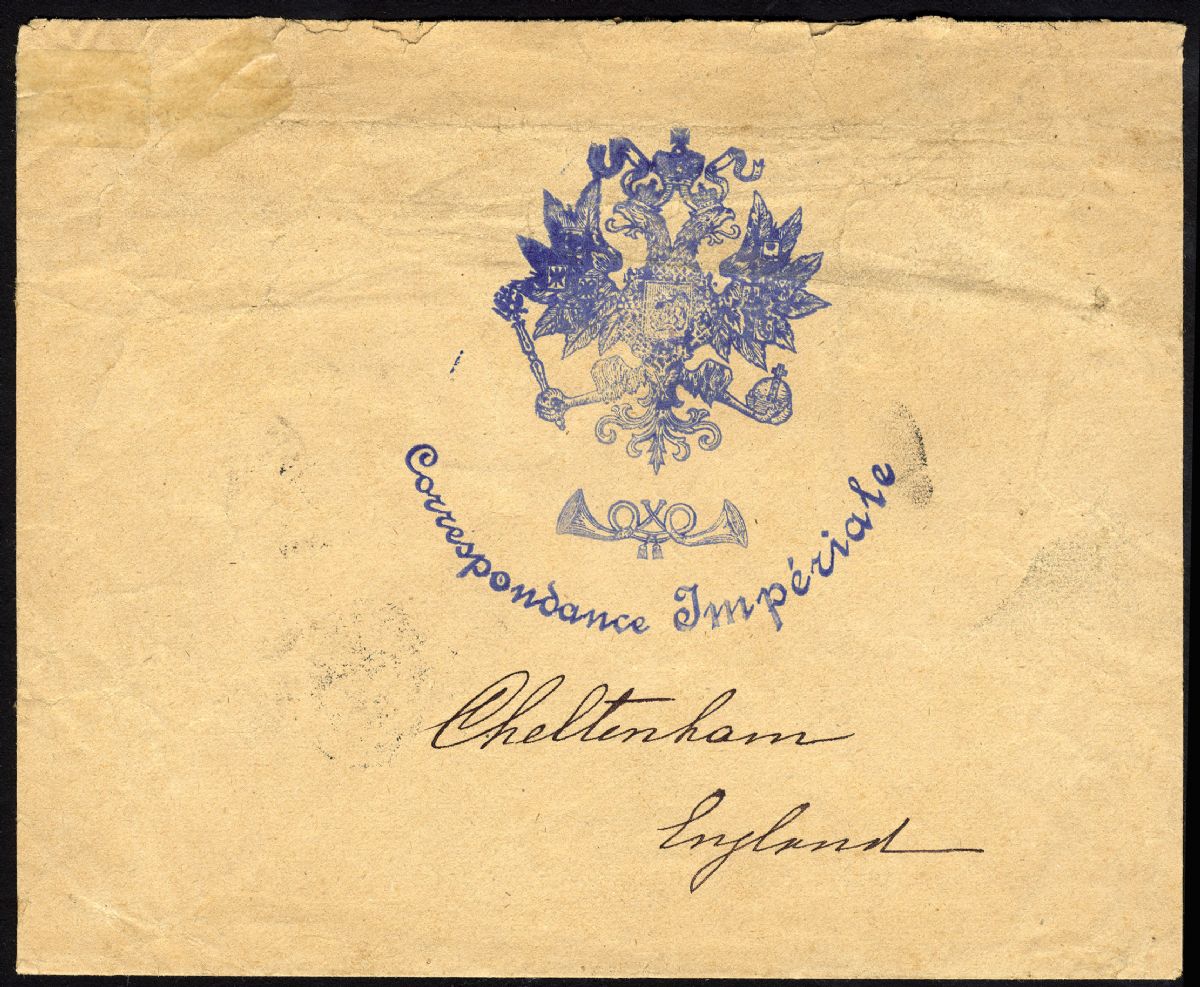 Correspondance Impériale
Cheltenham
England